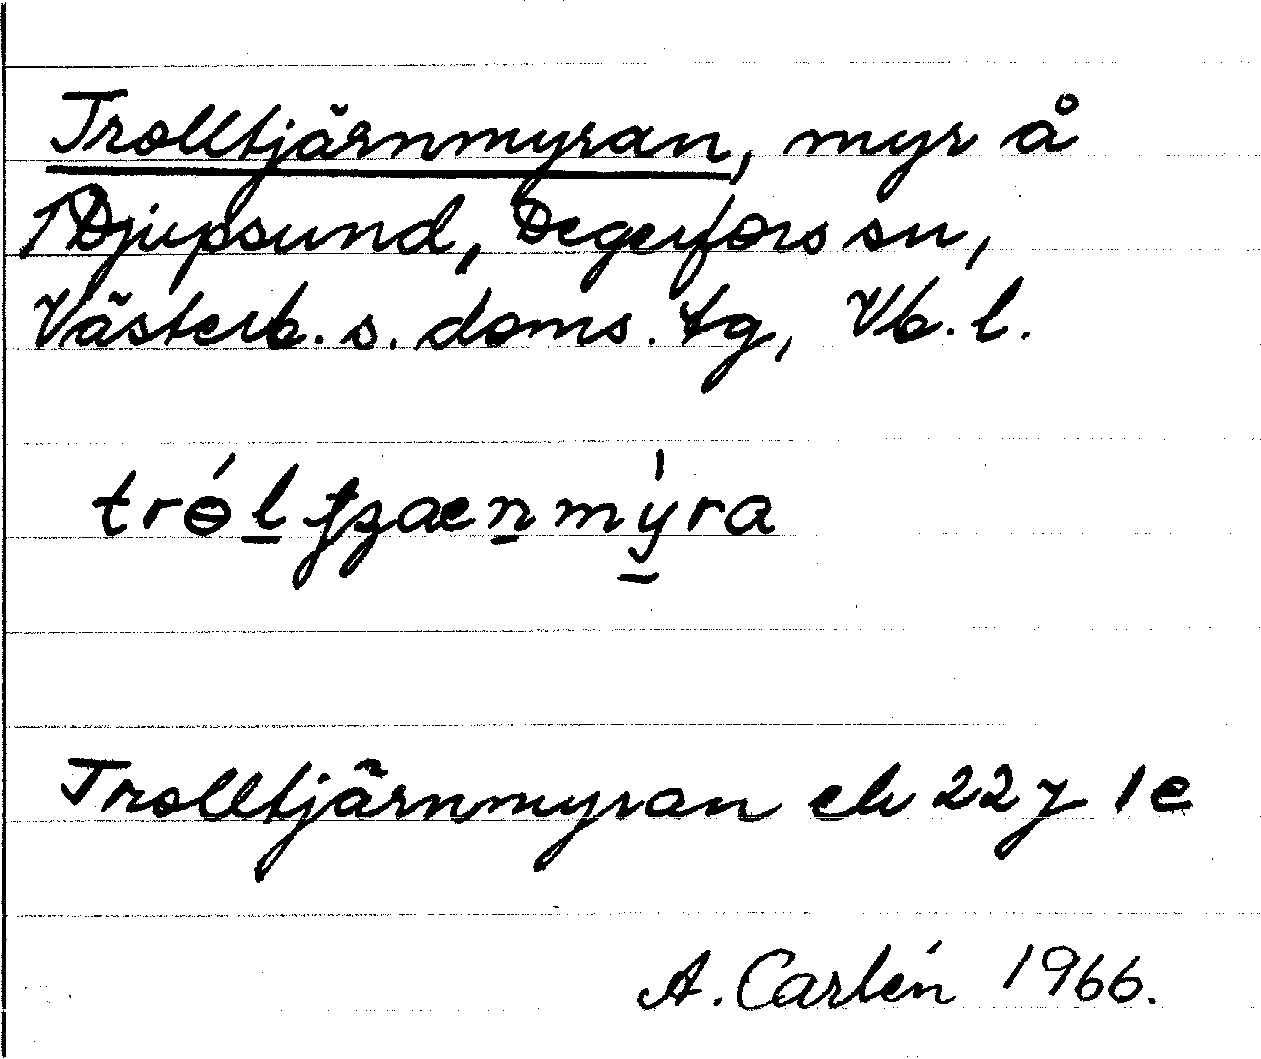 Trolltjärnmyran, myr å
1 Djupsund, Degerfors sn,
Västerb. s. doms. tg, Vb. l.
Trolltjärnmyran ek 22 J 1e
A. Carlén 1966.